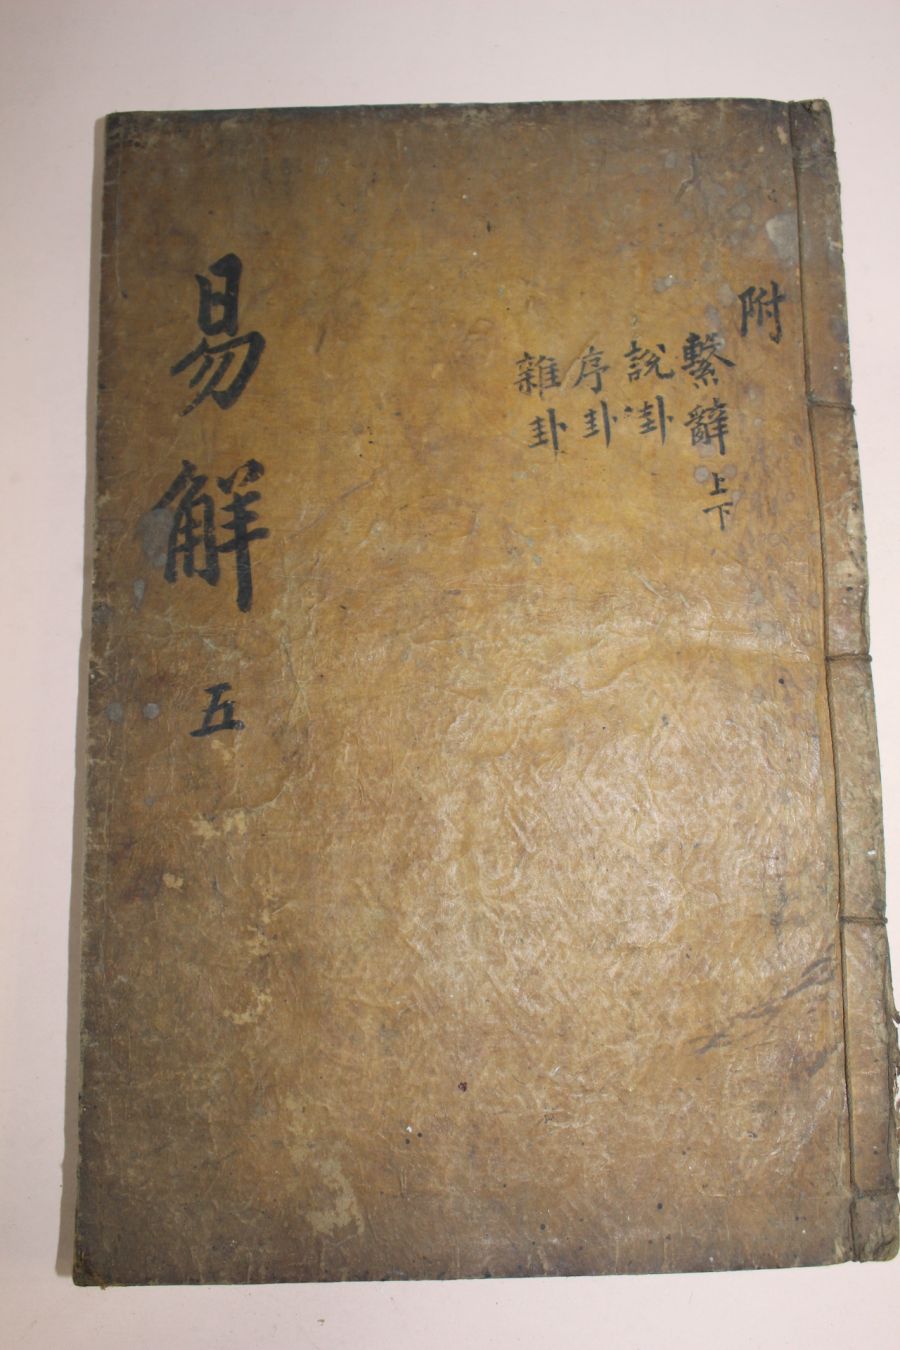 附
繫辭上下
說卦
序卦
雜卦
易解 五